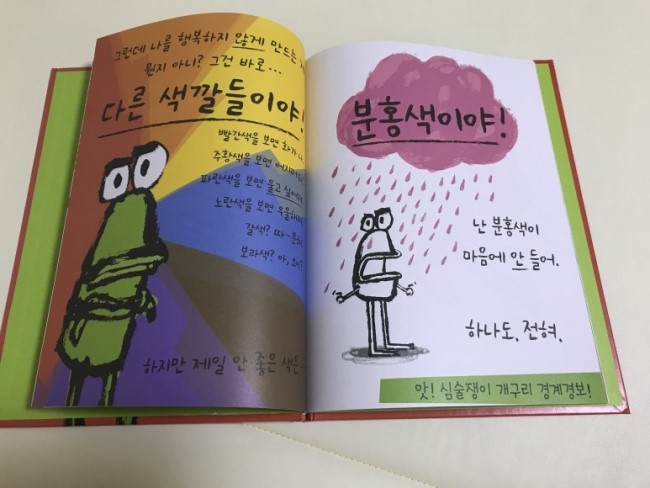 그런데 나를 행복하지 않게 만드는
뭔지 아니? 그건 바로...
다른 색깔들이야!
빨간색을 보면 화가
주황색을 보면
파란색을 보면 울고
노란색을 보면
갈색?
보라색? 아,
하지만 제일 안 좋은 색은
분홍색이야!
난 분홍색이
마음에 안 들어.
하나도, 전혀.
앗! 심술쟁이 개구리 경계경보!